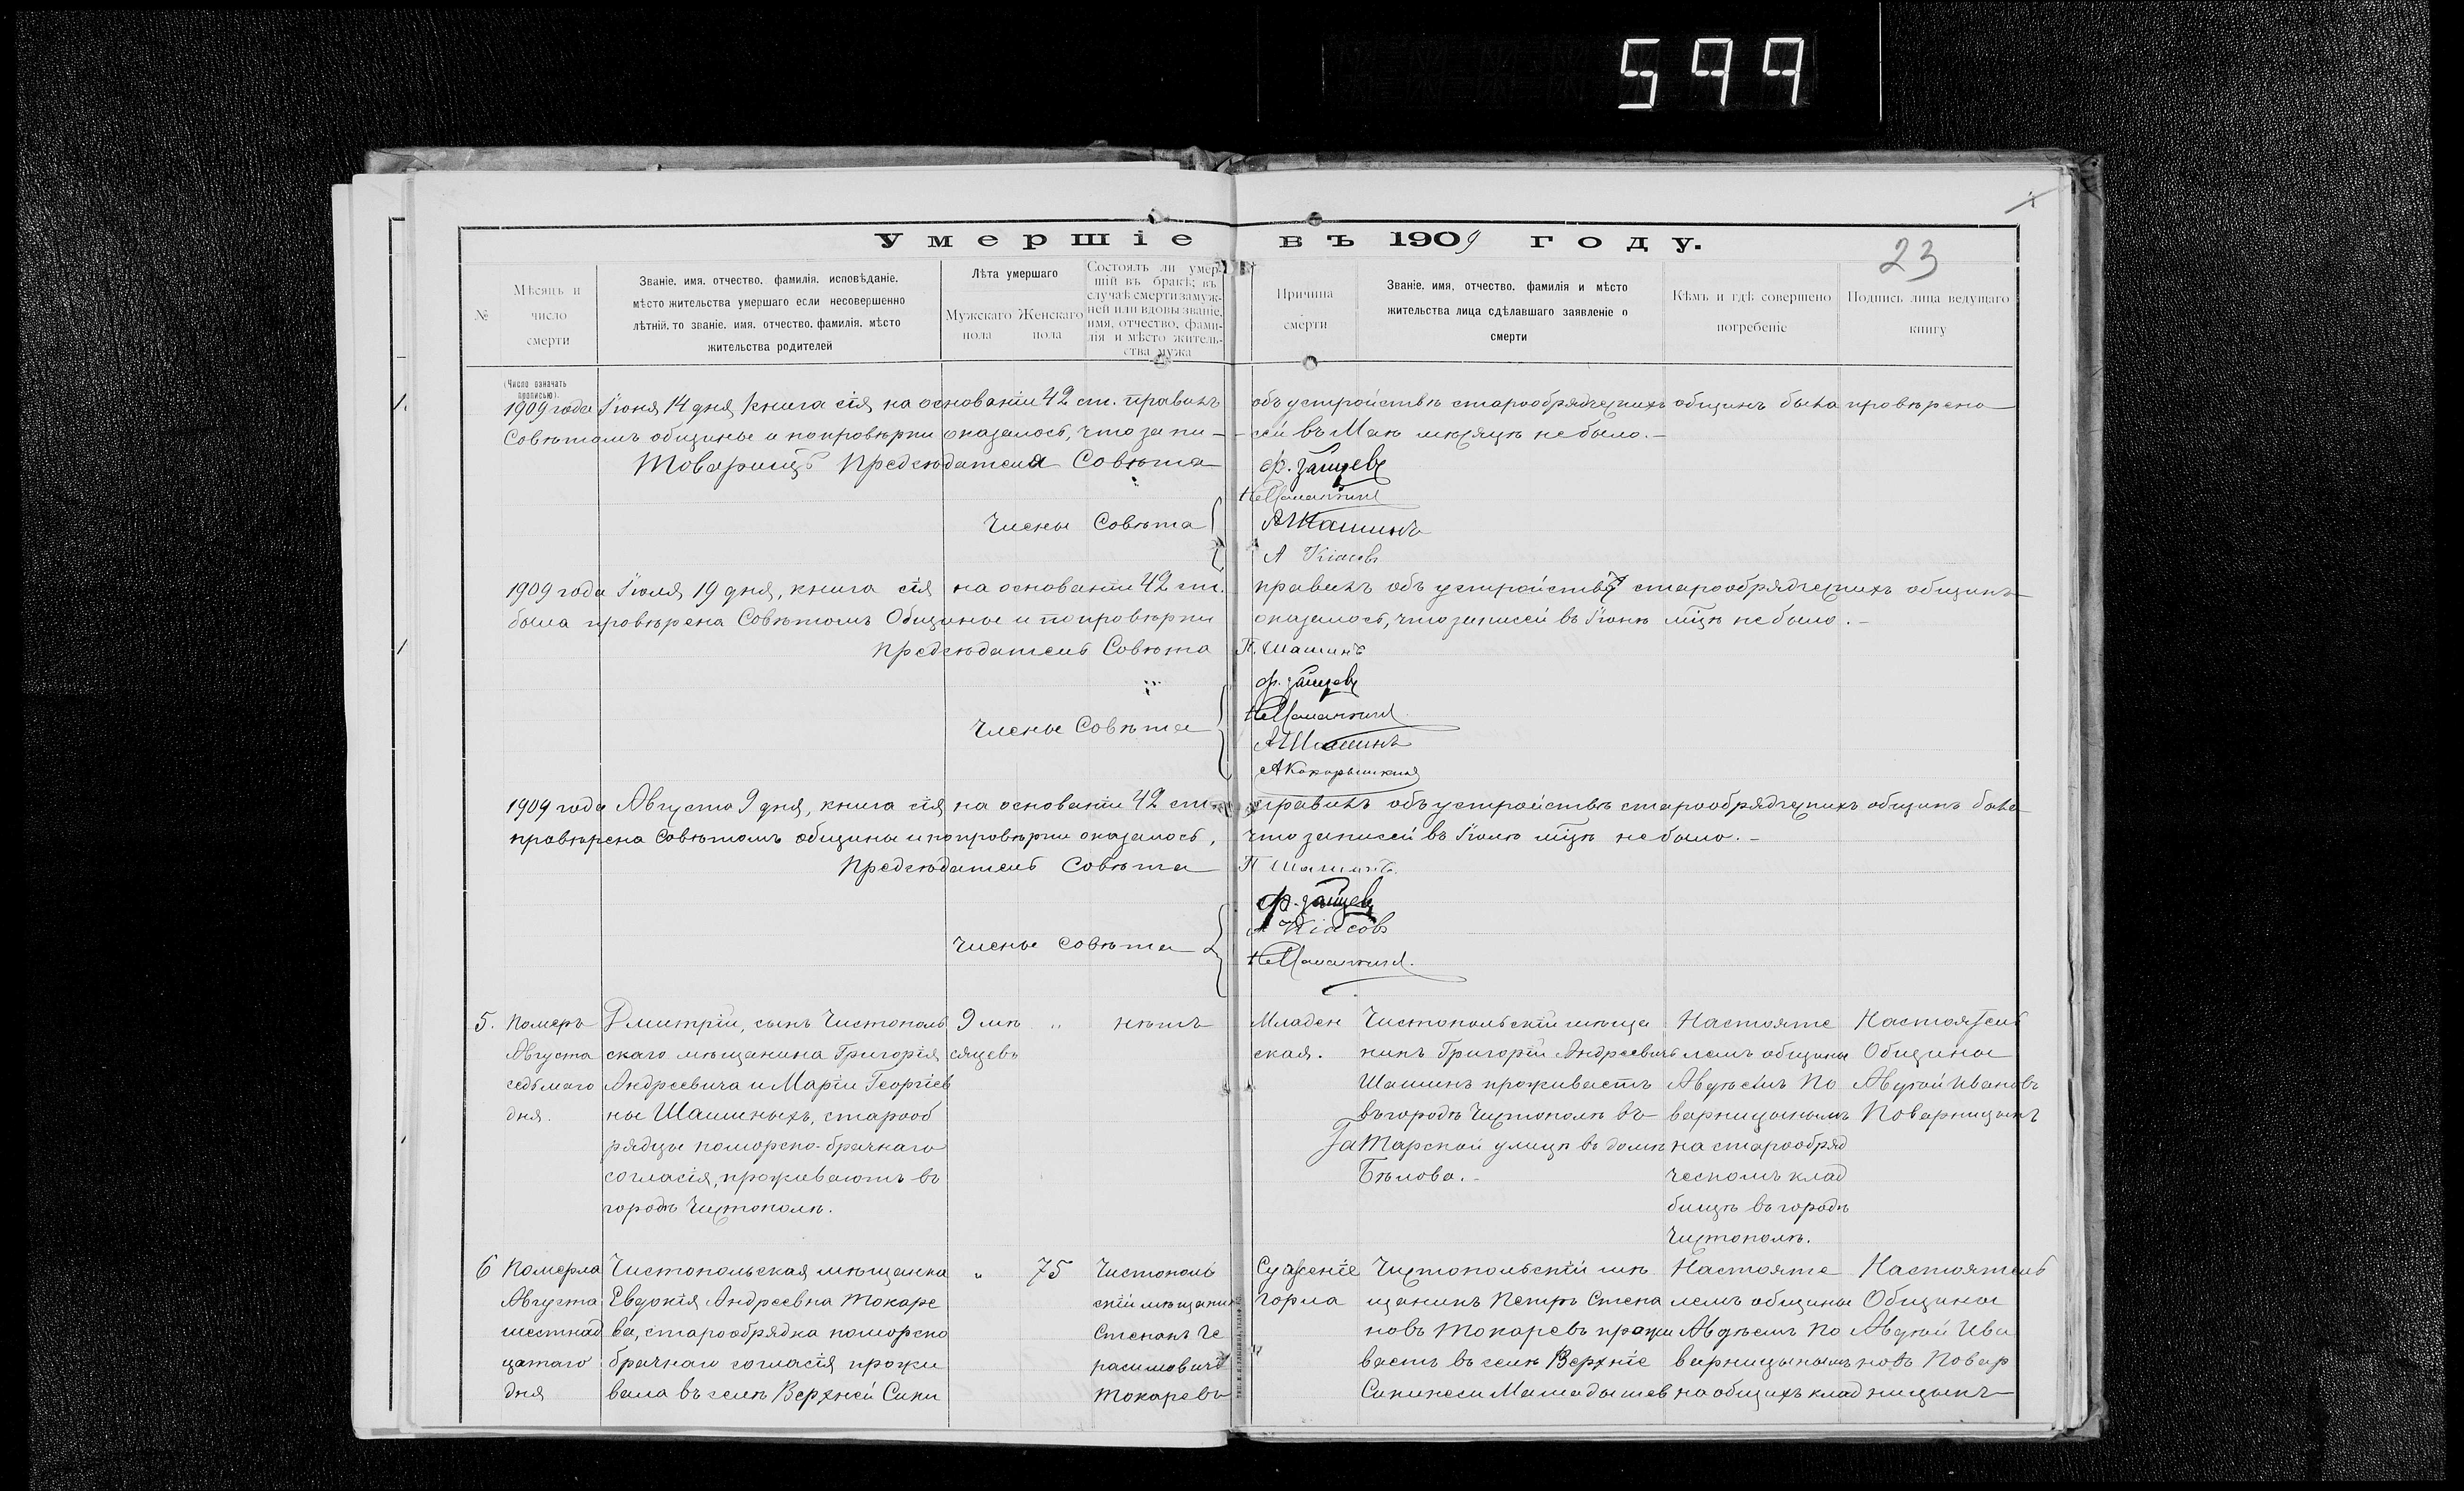 599
Умершіе въ 1909 году.
23
№
Мѣсяцъ и число смерти
Званіе, имя, отчество, фамилія, исповѣданіе, мѣсто жительства умершаго если несовершенно лѣтній, то званіе, имя, отчество, фамилія, мѣсто жительства родителей
Лѣта умершаго
Мужскаго пола
Женскаго пола
Состоялъ ли умершій въ бракѣ; въ случаѣ смерти замужней или вдовы званіе, имя, отчество, фамилія и мѣсто жительства мужа
Причина смерти
Званіе, имя, отчество, фамилія и мѣсто жительства лица сдѣлавшаго заявленіе о смерти
Кѣмъ и гдѣ совершено погребеніе
Подпись лица ведущаго книгу
(Число означать прописью).
1909 года Іюня 14 дня, книга сія, на основаніи 42 ст. правилъ объ устройствѣ старообрядческихъ общинъ была провѣрена
Совѣтомъ общины и по провѣрки оказалось, что запи- сей въ Маѣ мѣсяцѣ не было.
Товарищъ Предсѣдателя Совѣта Ф. Зайцевъ
Члены Совѣта
А Шашинъ
А Кіасовъ
1909 года Іюля 19 дня, книга сія на основаніи 42 ст. правилъ объ устройствѣ старообрядческихъ общинъ
была провѣрена Совѣтомъ Общины и по провѣрки оказалось, что записей въ Іюнѣ мцѣ не было.
Предсѣдатель Совѣта П. Шашинъ
Ф. Зайцевъ
Члены Совѣта
А Шашинъ
А Кокорышкинъ
1909 года Августа 9 дня, книга сія на основаніи 42 ст. правилъ объ устройствѣ старообрядческихъ общинъ была
провѣрена Совѣтомъ общины и по провѣрки оказалось, что записей въ Іюлѣ мцѣ не было.
Предсѣдатель Совѣта П Шашинъ.
Ф. Зайцевъ
А Кіасовъ
Члены Совѣта
5.
Померъ
Августа
седьмаго
дня.
Дмитрій, сынъ Чистополь
скаго мѣщанина Григорія
Андреевича и Маріи Георгіев
ны Шашиныхъ, старооб
рядцы поморско-брачнаго
согласія, проживаютъ въ
городѣ Чистополѣ.
9 мѣ
сяцевъ
"
нѣтъ
Младен
ская.
Чистопольскій мѣща
нинъ Григорій Андреевичъ
Шашинъ проживаетъ
въ городѣ Чистополѣ въ
Татарской улицѣ въ домѣ
Бѣлова.
Настояте
лемъ общины
Авдѣемъ По
варницынымъ
на старообряд
ческомъ клад
бищѣ въ городѣ
Чистополѣ.
Настоятель
Общины
Авдѣй Ивановъ
Поварницынъ
6
Померла
Августа
шестнад
цатаго
дня
Чистопольская мѣщанка
Евдокія Андреевна Токаре
ва, старообрядка поморско
брачнаго согласія прожи
вала въ селѣ Верхней Сики
"
75
Чистополь
скій мѣщанинъ
Степанъ Ге
расимовичъ
Токаревъ
Суженіе
горла
Чистопольскій мѣ
щанинъ Петръ Степа
новъ Токаревъ прожи
ваетъ въ селѣ Верхніе
Сикинеси Мамадышев
Настояте
лемъ общины
Авдѣемъ По
варницынымъ
на общихъ клад
Настоятель
Общины
Авдѣй Ива
новъ Повар
ницынъ